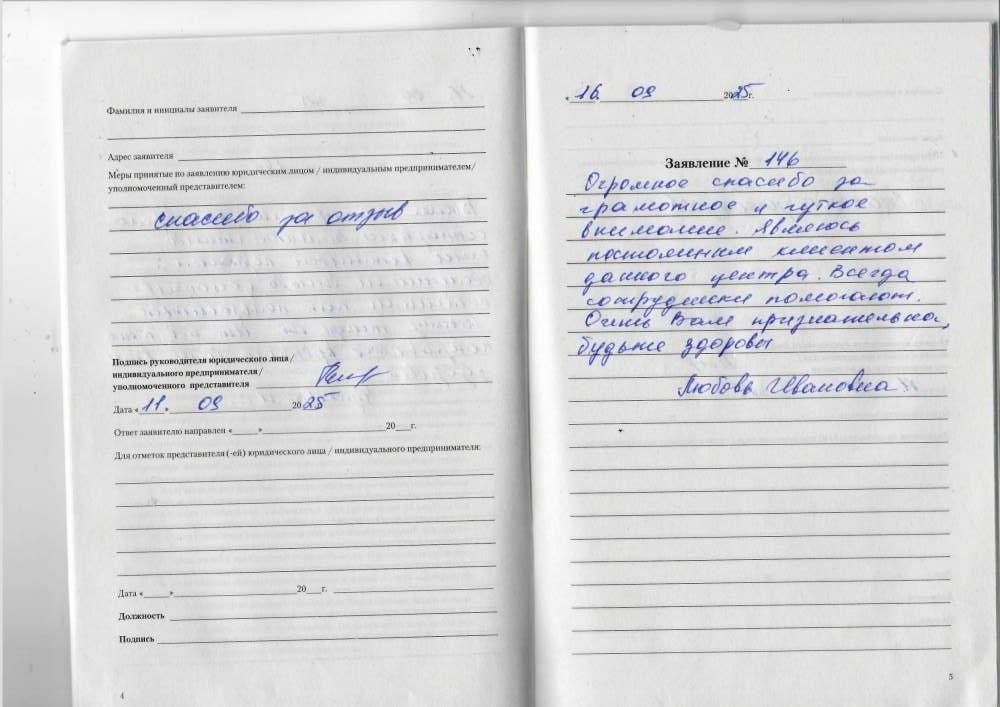 Фамилия и инициалы заявителя
Адрес заявителя
Меры принятые по заявлению юридическим лицом / индивидуальным предпринимателем/
уполномоченный представителем:
спасибо за отзыв
Подпись руководителя юридического лица /
индивидуального предпринимателя /
уполномоченного представителя
Дата « 11 » 09 2025
Ответ заявителю направлен « » 20 г.
Для отметок представителя (-ей) юридического лица / индивидуального предпринимателя:
Дата « » 20 г.
Должность
Подпись
4
« 16 09 2025г.
Заявление № 146
Огромное спасибо за
грамотное и чуткое
внимание. Являюсь
постоянным клиентом
данного центра. Всегда
сотрудники помогают.
Очень Вам признательна,
будьте здоровы
Любовь Ивановна
5